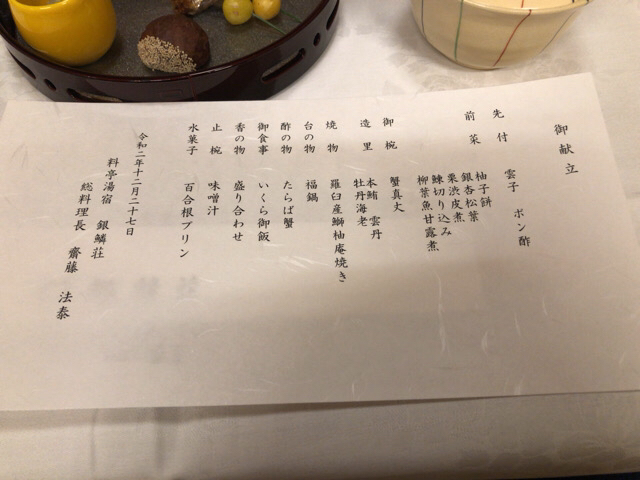 御献立
先付　雲子　ポン酢
前菜　柚子餅
銀杏松葉
栗渋皮煮
鰊切り込み
柳葉魚甘露煮
御椀　蟹真丈
造里　本鮪　雲丹
牡丹海老
焼物　羅臼産鰤柚庵焼き
台の物　福鍋
酢の物　たらば蟹
御食事　いくら御飯
香の物　盛り合わせ
止椀　味噌汁
水菓子　百合根プリン
令和二年十二月二十七日
料亭湯宿　銀鱗荘
総料理長　齋藤　法泰